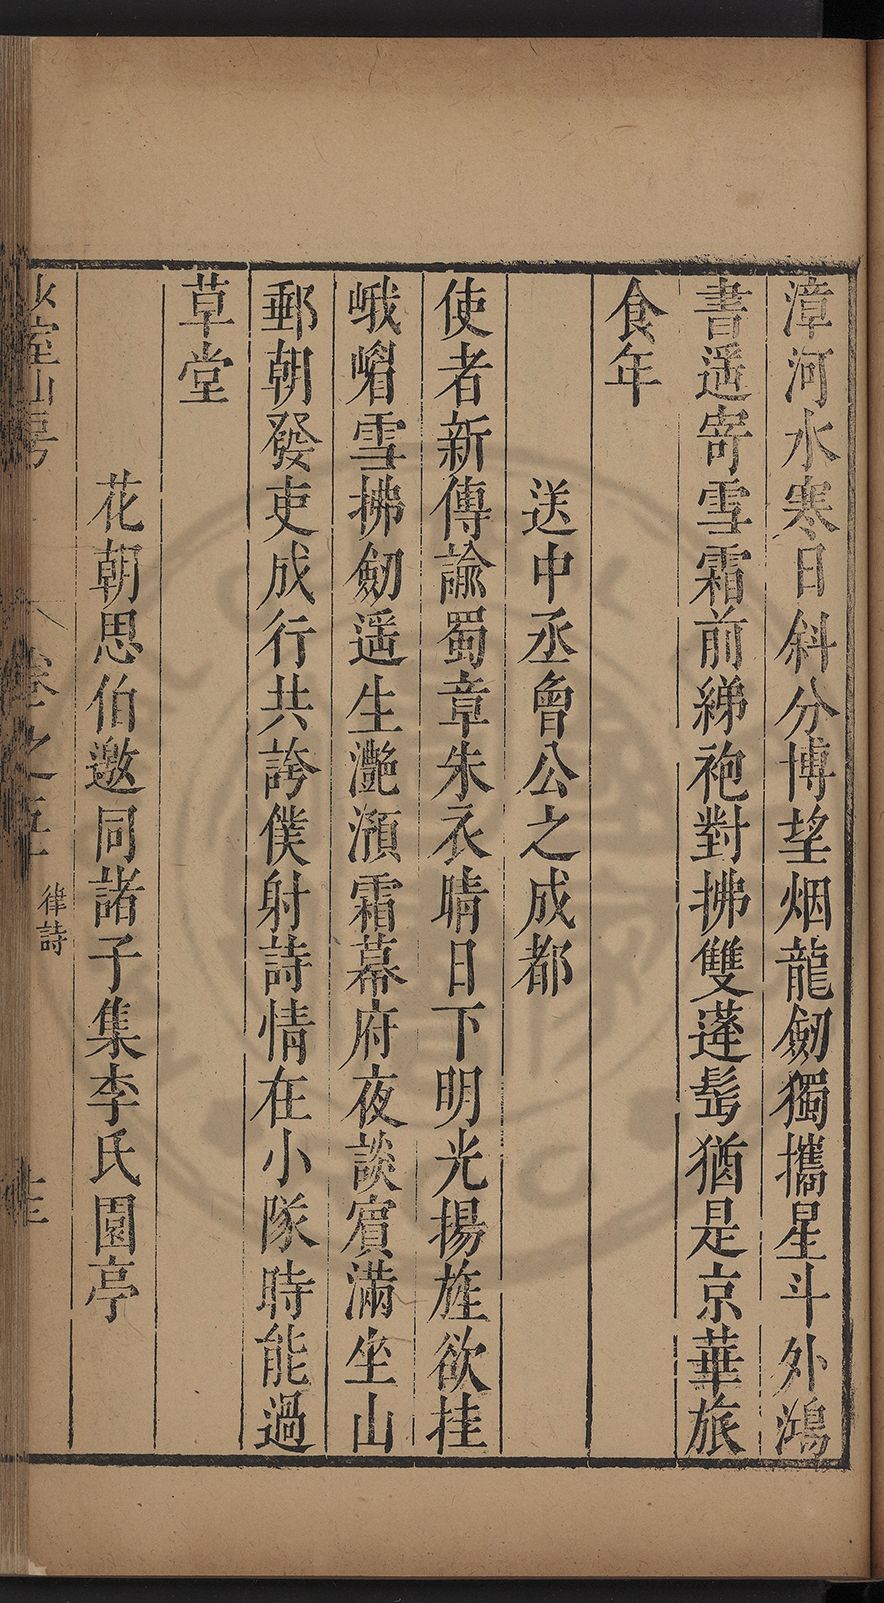 漳河水寒日斜分博望烟龍劒獨攜星斗外鴻
書遥寄雪霜前綈袍對拂雙蓬髩猶是京華旅
食年
送中丞曾公之成都
使者新傳諭蜀章朱衣晴日下明光揚旌欲挂
峨嵋雪拂劒遥生灔澦霜幕府夜談賓滿坐山
郵朝發吏成行共誇僕射詩情在小隊時能過
草堂
花朝思伯邀同諸子集李氏園亭
少室山房
卷之五
律詩